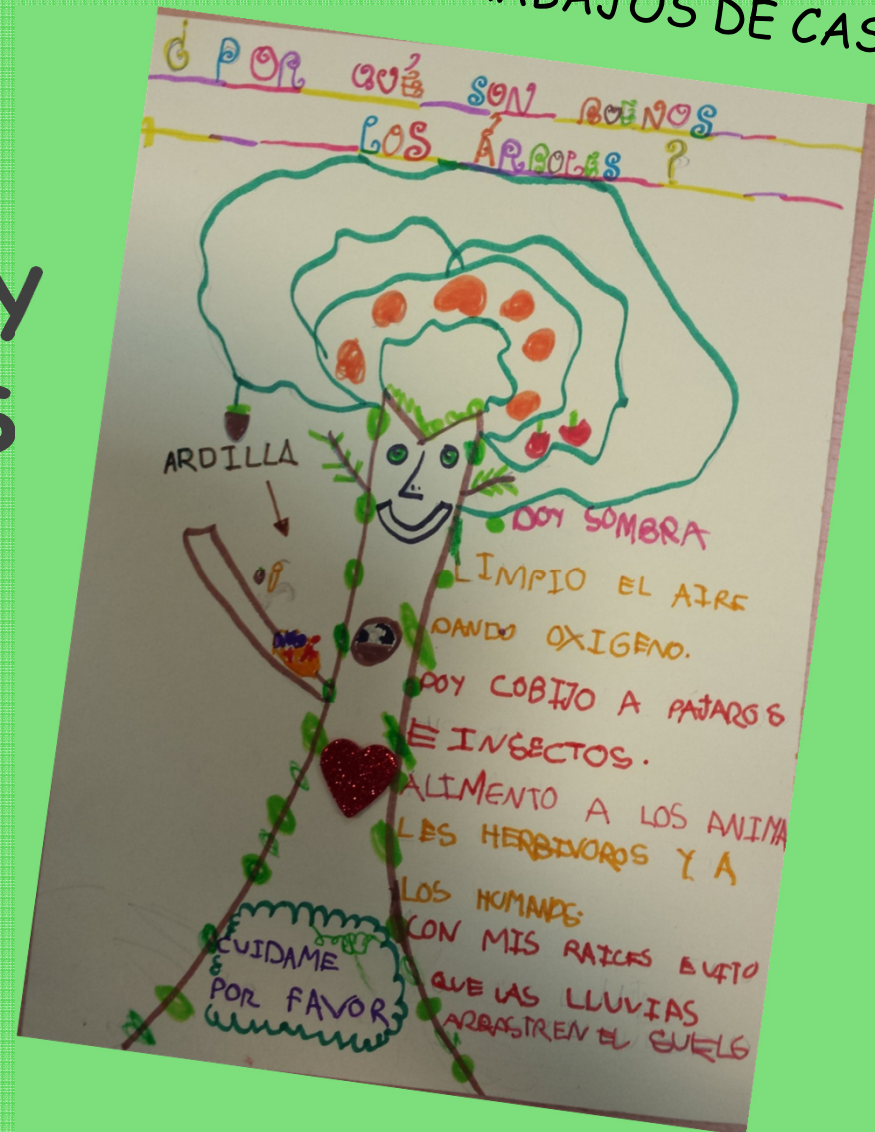 TRABAJOS DE CAS
y
s
¿POR QUÉ SON BUENOS
LOS ÁRBOLES?
ARDILLA
DOY SOMBRA
LIMPIO EL AIRE
DANDO OXIGENO.
DOY COBIJO A PAJAROS
E INSECTOS.
ALIMENTO A LOS ANIMA
LES HERBIVOROS Y A
LOS HUMANOS.
CON MIS RAICES EVITO
QUE LAS LLUVIAS
ARRASTREN EL SUELO
CUIDAME
POR FAVOR